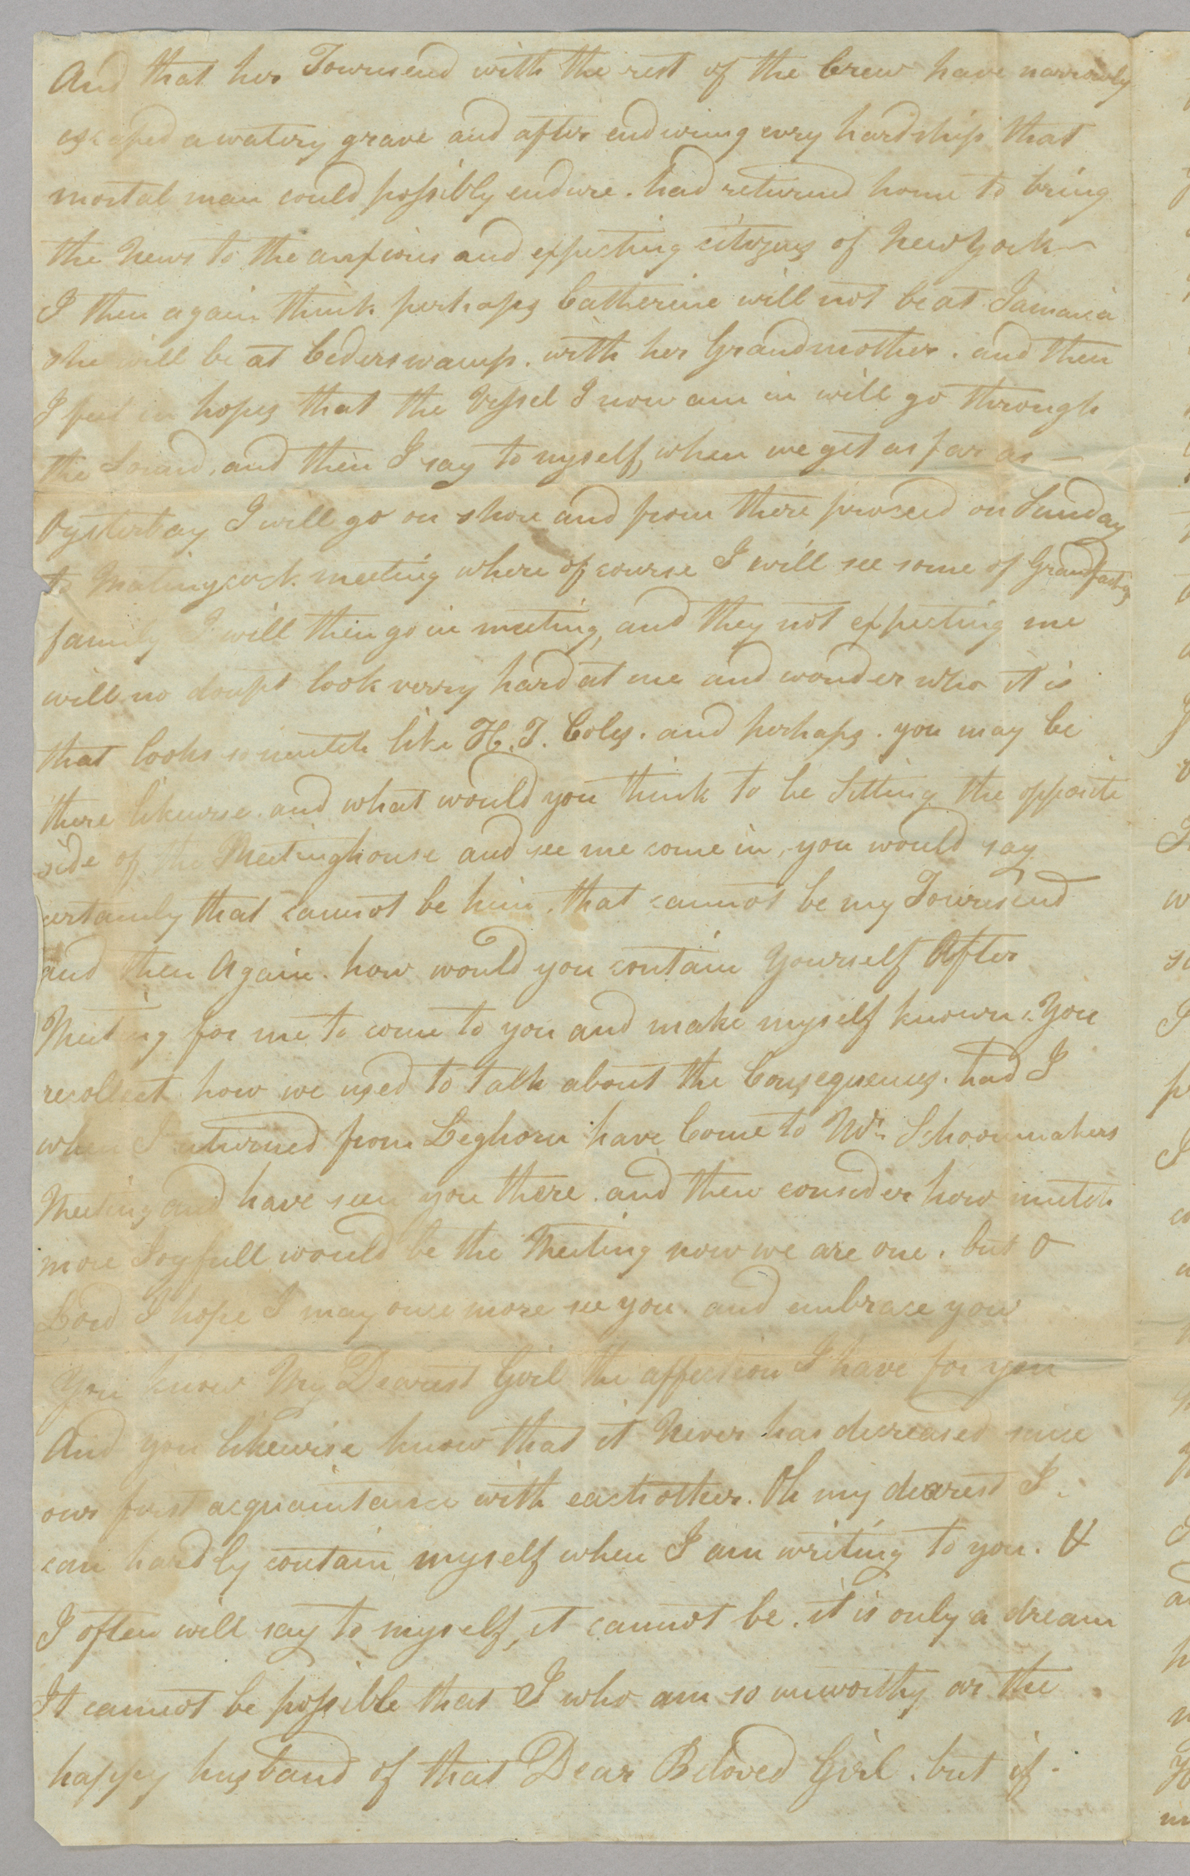 And that her Townsend with the rest of the Crew have narrowly
escaped a watery grave and after enduring evry hardship that
mortal man could possibly endure. had returned home to bring
the News to the anxious and expecting citizens of New York —
I then again think perhaps Catherine will not be at Jamaica
she will be at Cederswamp. with her Grandmother. and then
I feel in hopes that the Vessel I now am in will go through
the Sound, and then I say to myself, when we get as far as —
Oysterbay I will go on shore and from there proseed on Sunday
to Matinycock meeting where of course I will see some of Grandfathers
family I will then go in meeting, and they not expecting me
will no doupt look verry hard at me and wonder who it is
that looks so mutch like H. T. Coles. and perhaps. you may be
there likewise. and what would you think to be Sitting the opposite
side of the Meetinghouse and see me come in, you would say
certainly that cannot be him. that cannot be my Townsend
and then Again. how would you contain Yourself After
Meeting for me to come to you and make myself known. You
recollect how we used to talk about the Consequences. had I
when I returned from Leghorn have Come to Mr. Schoonmakers
Meeting and have seen you there. and then consider how mutch
more Joyfull would be the Meeting now we are one. but O
Lord I hope I may once more see you. and embrace you
You know My Dearest Girl the affection I have for you
And you likewise know that it Never has decreased since
our first acquaintance with eachother. Oh my dearest I
can hardly contain myself when I am writing to you. &
I often will say to myself, it cannot be. it is only a dream
It cannot be possible that I who am so unworthy or the
happy husband of that Dear Beloved Girl. but if